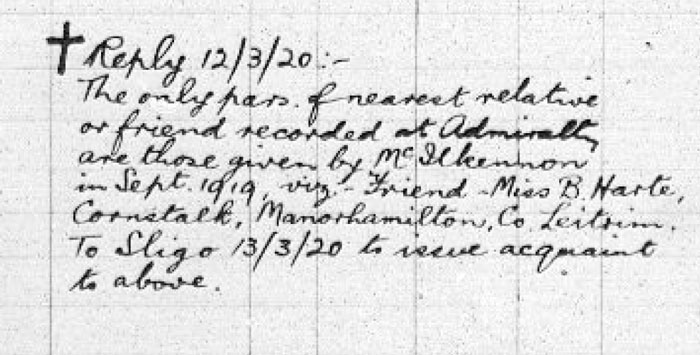 † Reply 12/3/20:-
The only pars. of nearest relative
or friend recorded at Admiralty
are those given by Mc Ilkennon
in Sept. 1919, viz - Friend - Miss B. Harte,
Cornstalk, Manorhamilton, Co. Leitrim.
To Sligo 13/3/20 to issue acquaint
to above.